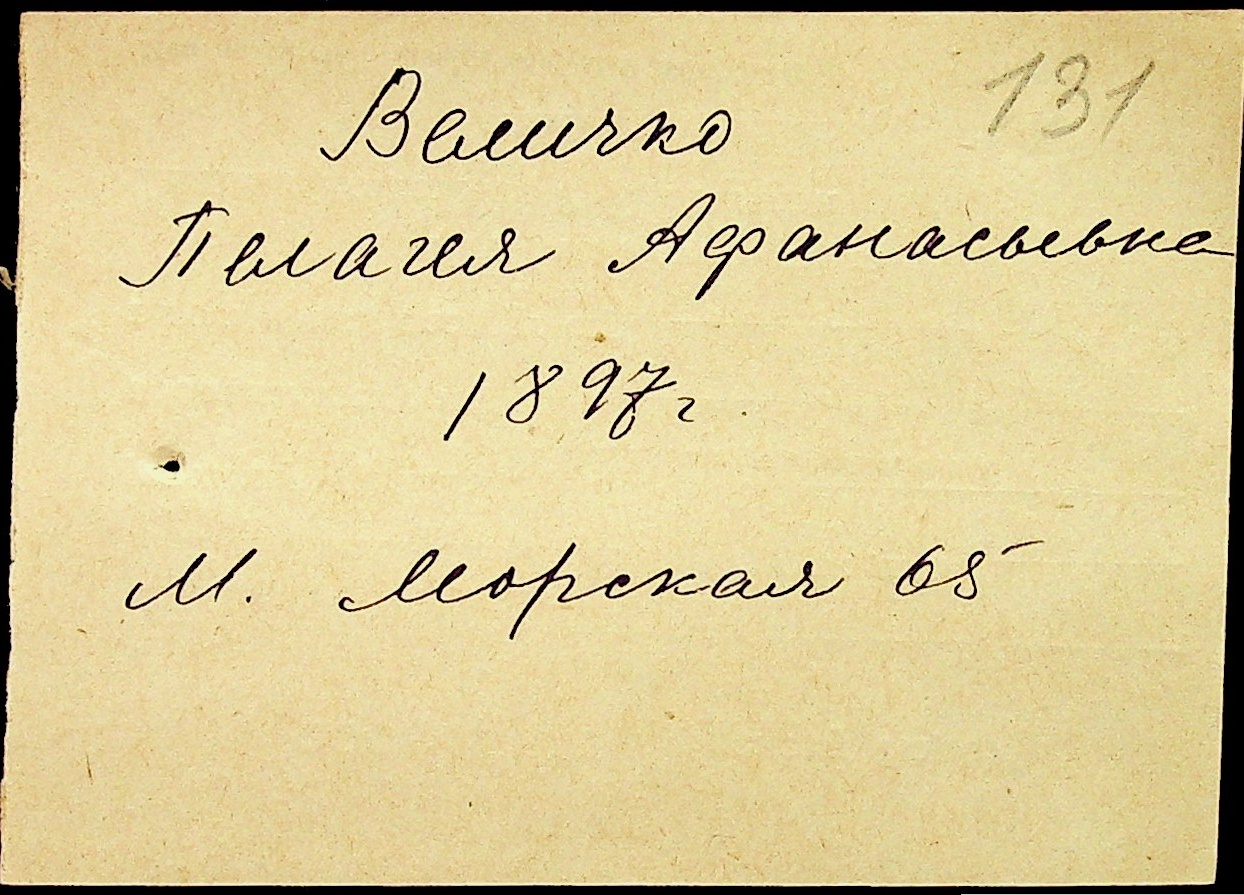 131
Величко
Пелагея Афанасьевна
1897г
М. Морская 65